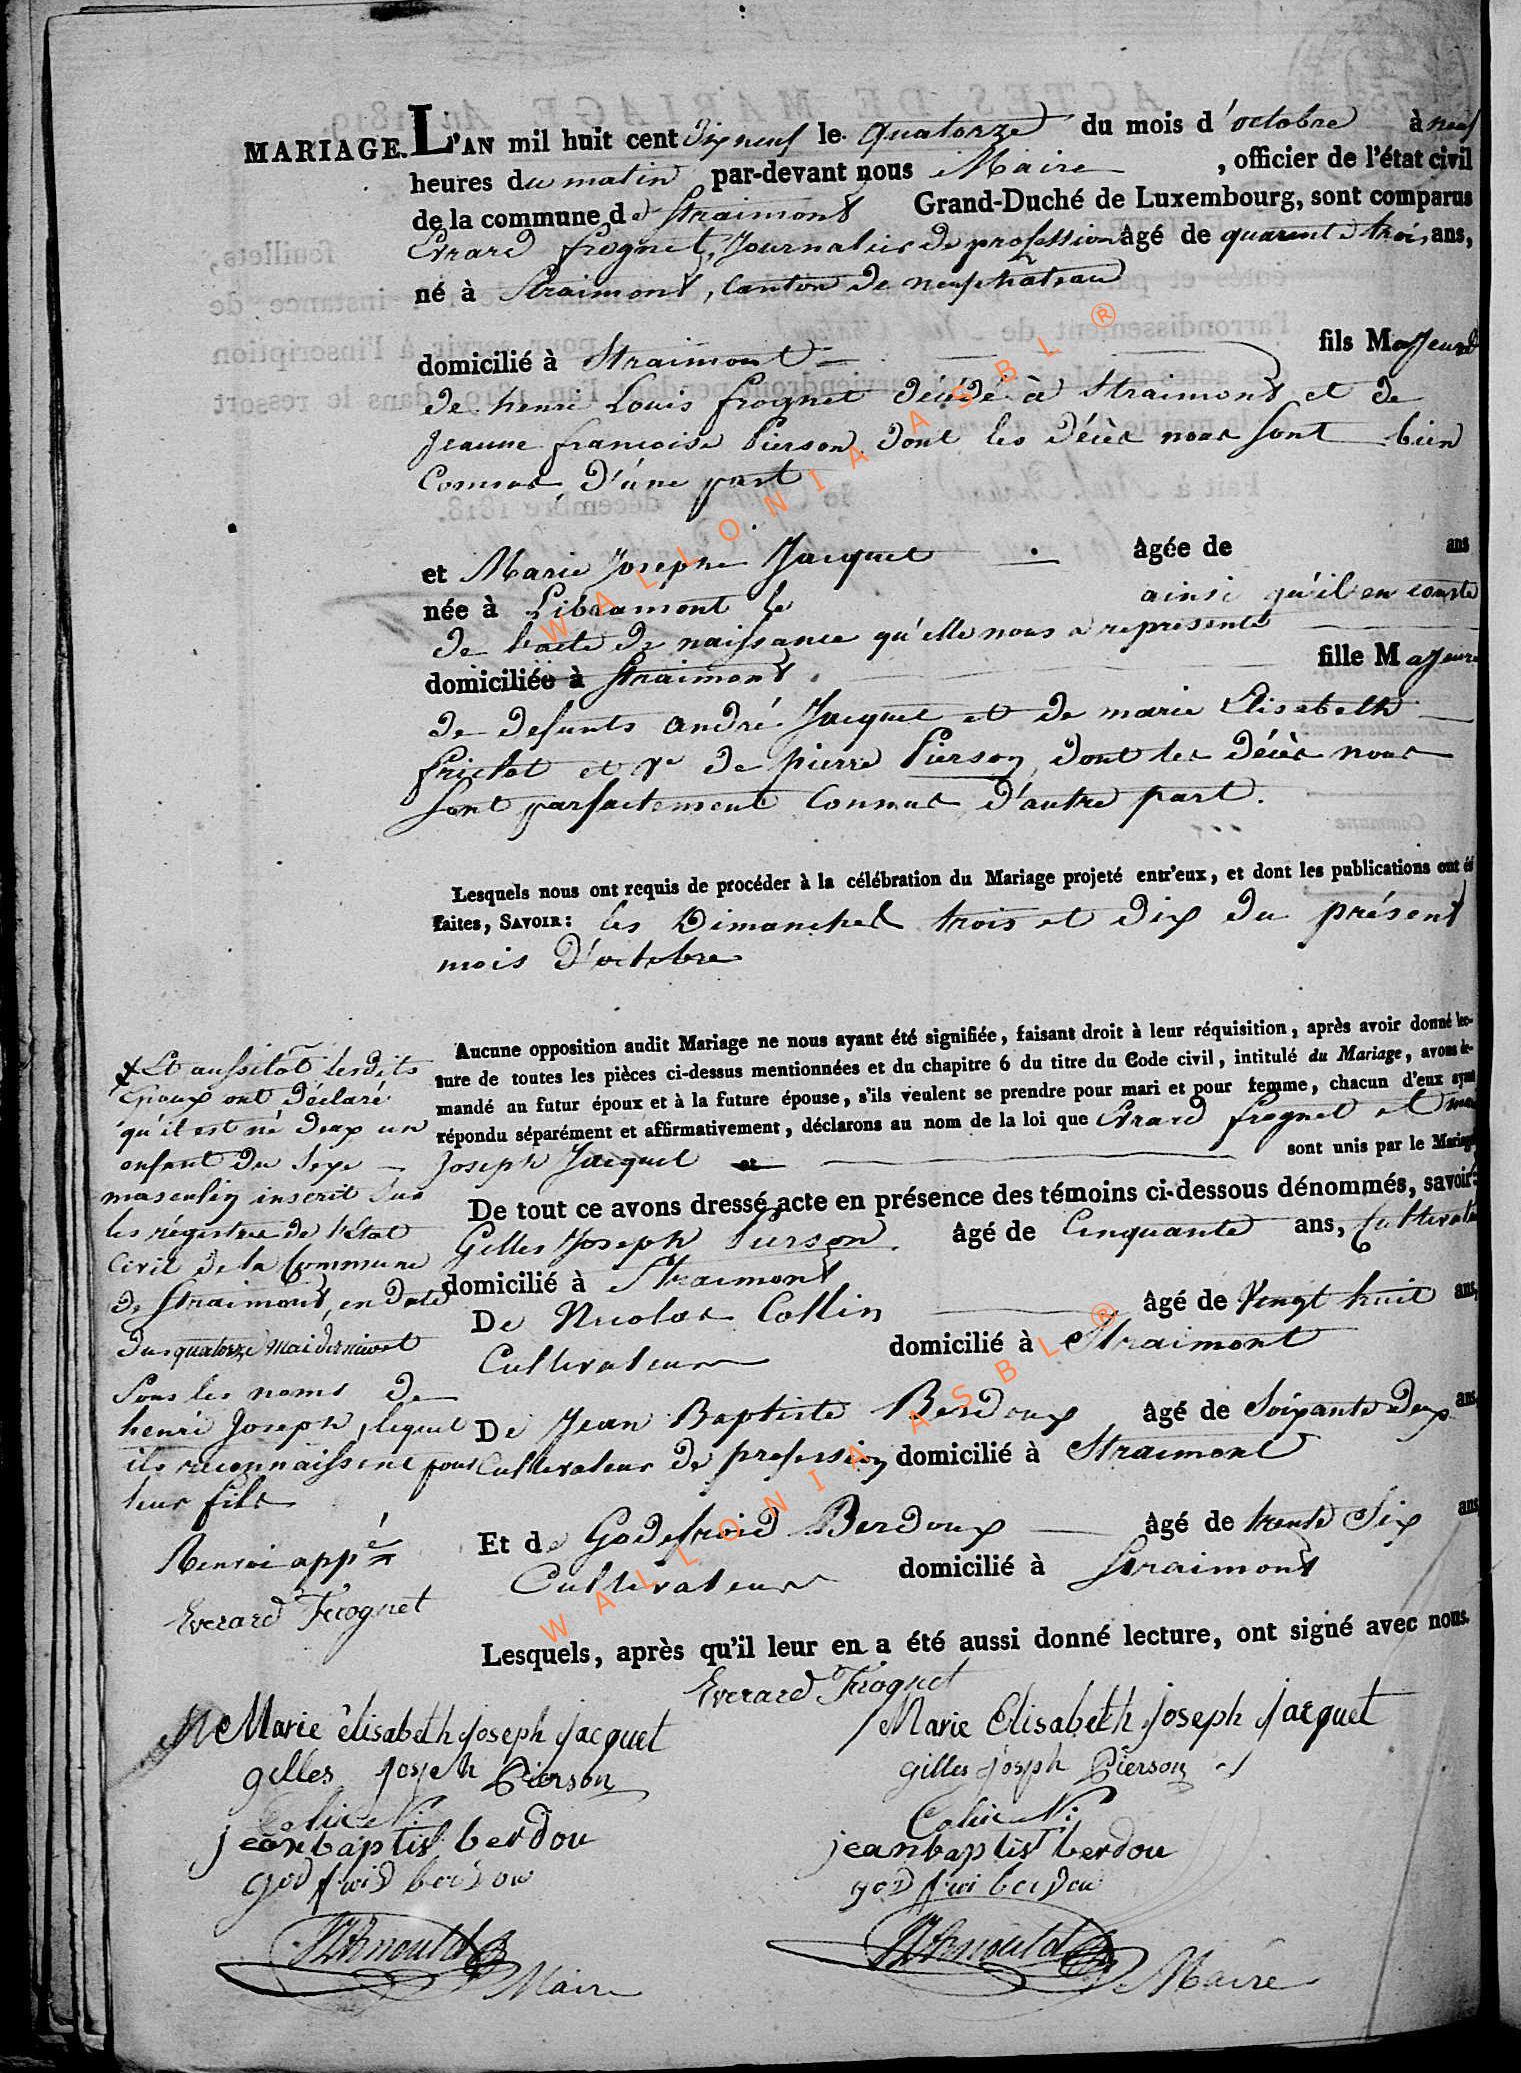 MARIAGE. L'AN mil huit cent dix neuf le quatorze du mois d'octobre à neuf
heures du matin par-devant nous Maire , officier de l'état civil
de la commune de Straimont Grand-Duché de Luxembourg, sont comparus
Evrard frognet, Journalier de profession âgé de quarente trois ans,
né à Straimont, Canton de neufchateau
domicilié à Straimont fils Majeur
de henri Louis frognet décédé à Straimont et de
Jeanne francoise Pierson dont les décès nous sont bien
Connus d'une part
et Marie Josephe Jacquet âgée de ans
née à Libramont le ainsi qu'il en conste
de l'acte de naissance qu'elle nous a representé
domiciliée à Straimont fille Majeure
de defunts andré Jacquet et de marie Elisabeth
frichet et Ve de pierre Pierson, dont les décès nous
sont parfaitement Connus d'autre part.
Lesquels nous ont requis de procéder à la célébration du Mariage projeté entr'eux, et dont les publications ont été
faites, SAVOIR: les Dimanches trois et dix du présent
mois d'octobre
Aucune opposition audit Mariage ne nous ayant été signifiée, faisant droit à leur réquisition, après avoir donné lec-
ture de toutes les pièces ci-dessus mentionnées et du chapitre 6 du titre du Code civil, intitulé du Mariage, avons de-
mandé au futur époux et à la future épouse, s'ils veulent se prendre pour mari et pour femme, chacun d'eux ayant
répondu séparément et affirmativement, déclarons au nom de la loi que Evrard frognet et marie
Joseph Jacquet et sont unis par le Mariage
De tout ce avons dressé acte en présence des témoins ci-dessous dénommés, savoir:
Gilles Joseph Pierson âgé de Cinquante ans, Cultivateur
domicilié à Straimont
De Nicolas Collin âgé de Vingt huit ans,
Cultivateur domicilié à Straimont
De Jean Baptiste Berdoux âgé de Soixante deux ans
Cultivateur de profession domicilié à Straimont
Et de Godefroid Berdoux âgé de trente Six ans
Cultivateur domicilié à Straimont
Lesquels, après qu'il leur en a été aussi donné lecture, ont signé avec nous.
Et aussitôt lesdits
Epoux ont déclaré
qu'il est né d'eux un
enfant du Sexe
masculin inscrit sur
les régistres de l'état
Civil de la Commune
de Straimont, en date
du quatorze mai dernier
Sous les noms de
henri Joseph, lequel
ils reconnaissent pour
leur fils
Renvoi appé
Everard Frognet
Everard Frognet
Marie èlisabeth joseph jacquet
gilles joseph Pierson
Colin N:
jean baptist berdou
godfroid berdou
Arnould
Maire
Marie Elisabeth joseph jacquet
gilles joseph Pierson
Colin N:
jean baptist berdou
godfroi berdou
Arnould
Maire
WALLONIA ASBL ®
WALLONIA ASBL ®